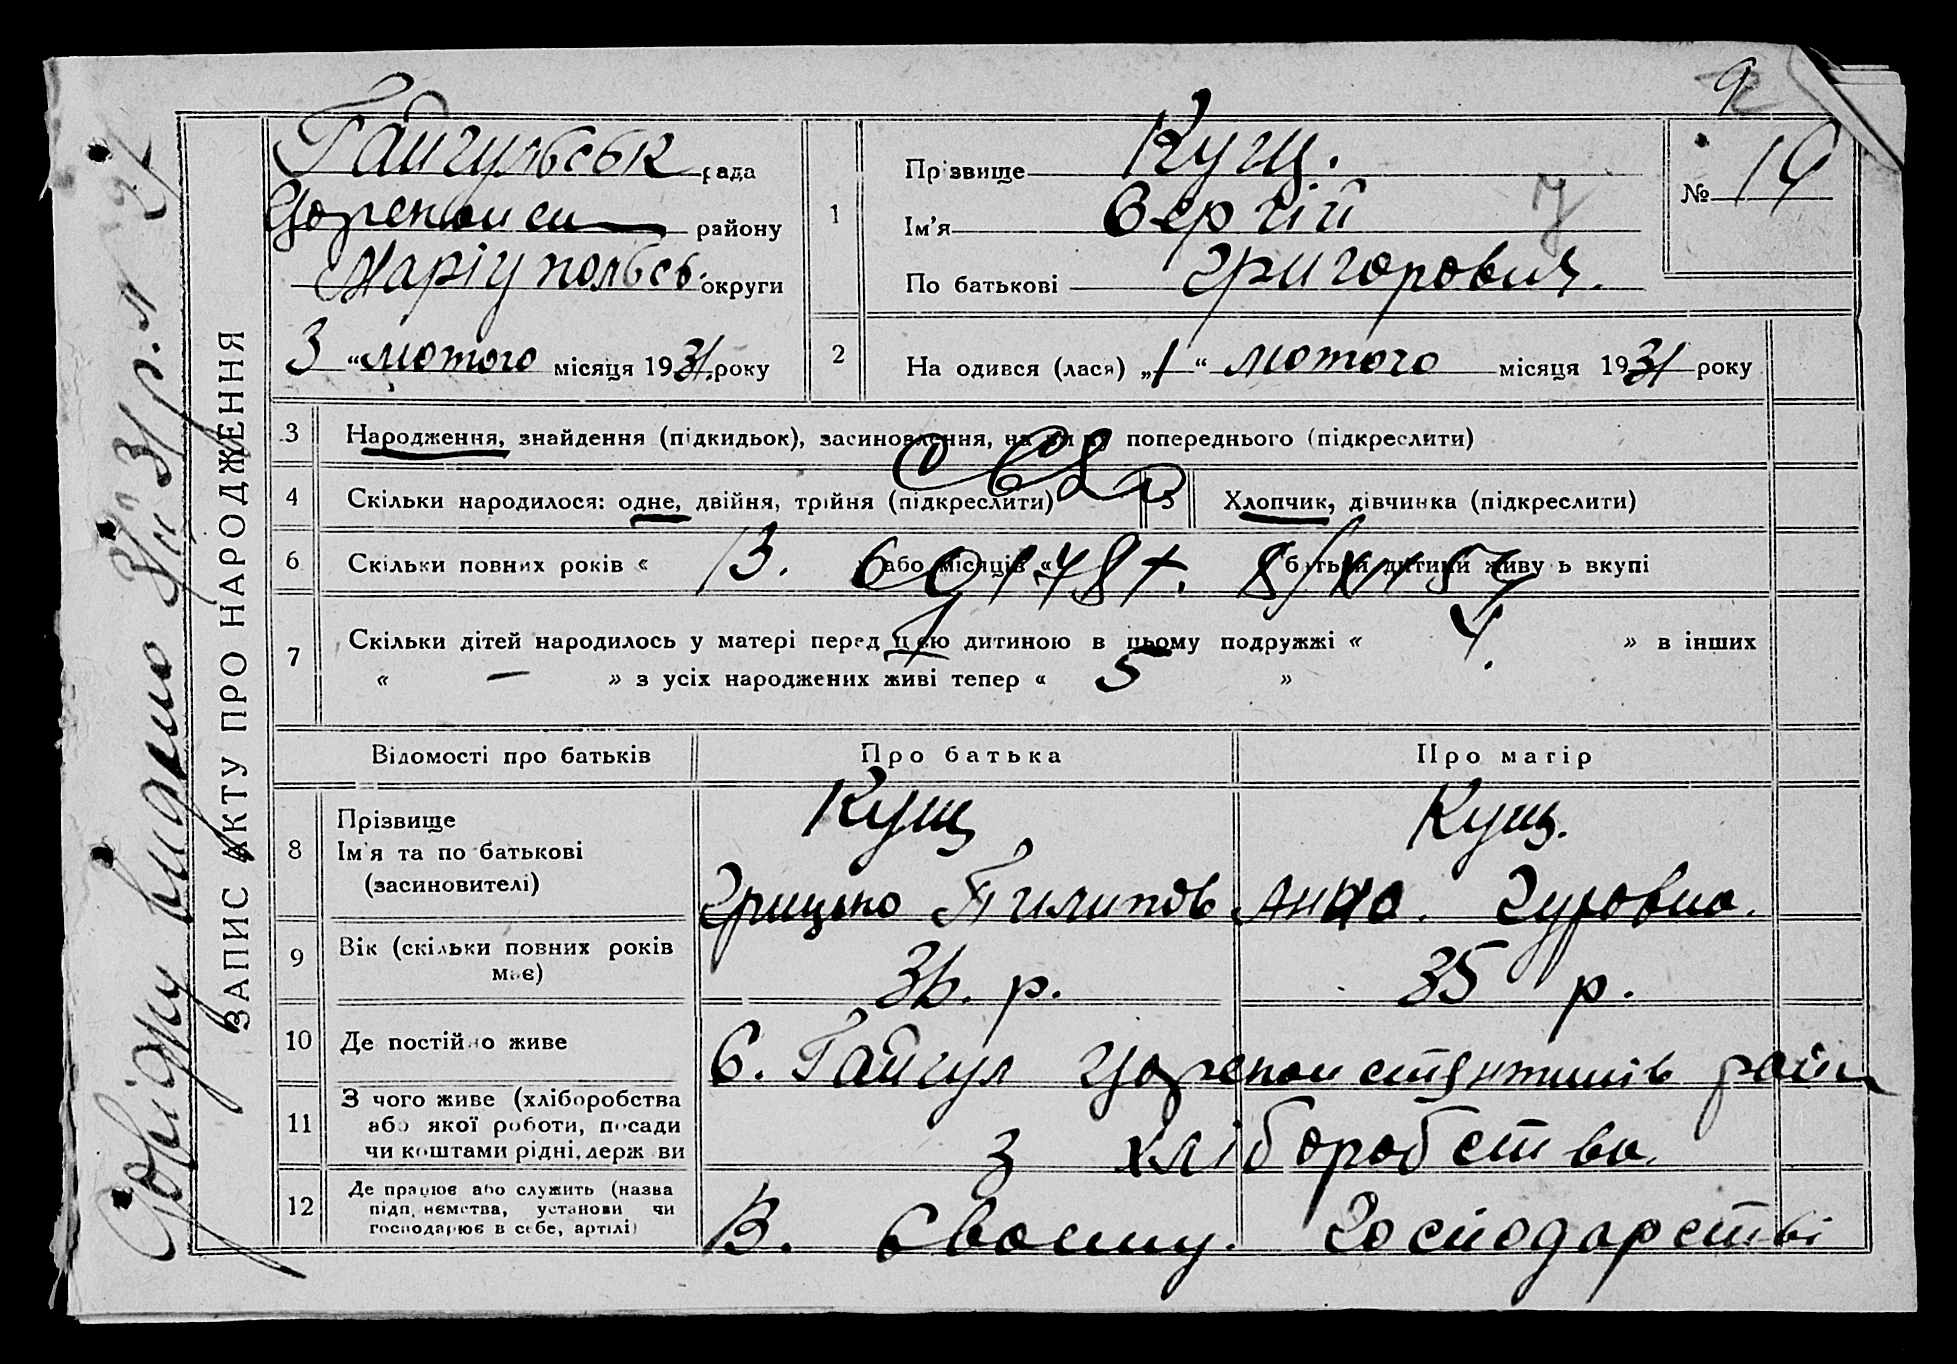 9
Гайгульськ рада
Царекон си району
Маріупольсь. округи
3 „ лютого місяця 1931 року
1
Прізвище Кущ.
Ім'я Сергій
По батькові Григорович.
7
№ 14
2 На одився (лася) „1“ лютого місяця 1931 року
ЗАПИС АКТУ ПРО НАРОДЖЕННЯ
3 Народження, знайдення (підкидьок), засиновлення, попереднього (підкреслити)
4 Скільки народилося: одне, двійня, трійня (підкреслити)
5 Хлопчик, дівчинка (підкреслити)
6 Скільки повних років « 13. або місяців « батьки дитини живу ь вкупі
7 Скільки дітей народилось у матері перед цією дитиною в цьому подружжі « 4. » в інших
« — » з усіх народжених живі тепер « 5 »
Відомості про батьків Про батька Про матір
8 Прізвище
Ім'я та по батькові
(засиновителі)
Кущ
Грицько Пилипов
Кущ.
Анна. Гуровна.
9 Вік (скільки повних років
має)
36. р. 35 р.
10 Де постійно живе С. Гайгул
11 З чого живе (хліборобства
або якої роботи, посади
чи коштами рідні, держ ви
З хліборобства.
12 Де працює або служить (назва
підп. иємства, установи чи
господарює в себе, артілі)
В. своєму. Господарстві